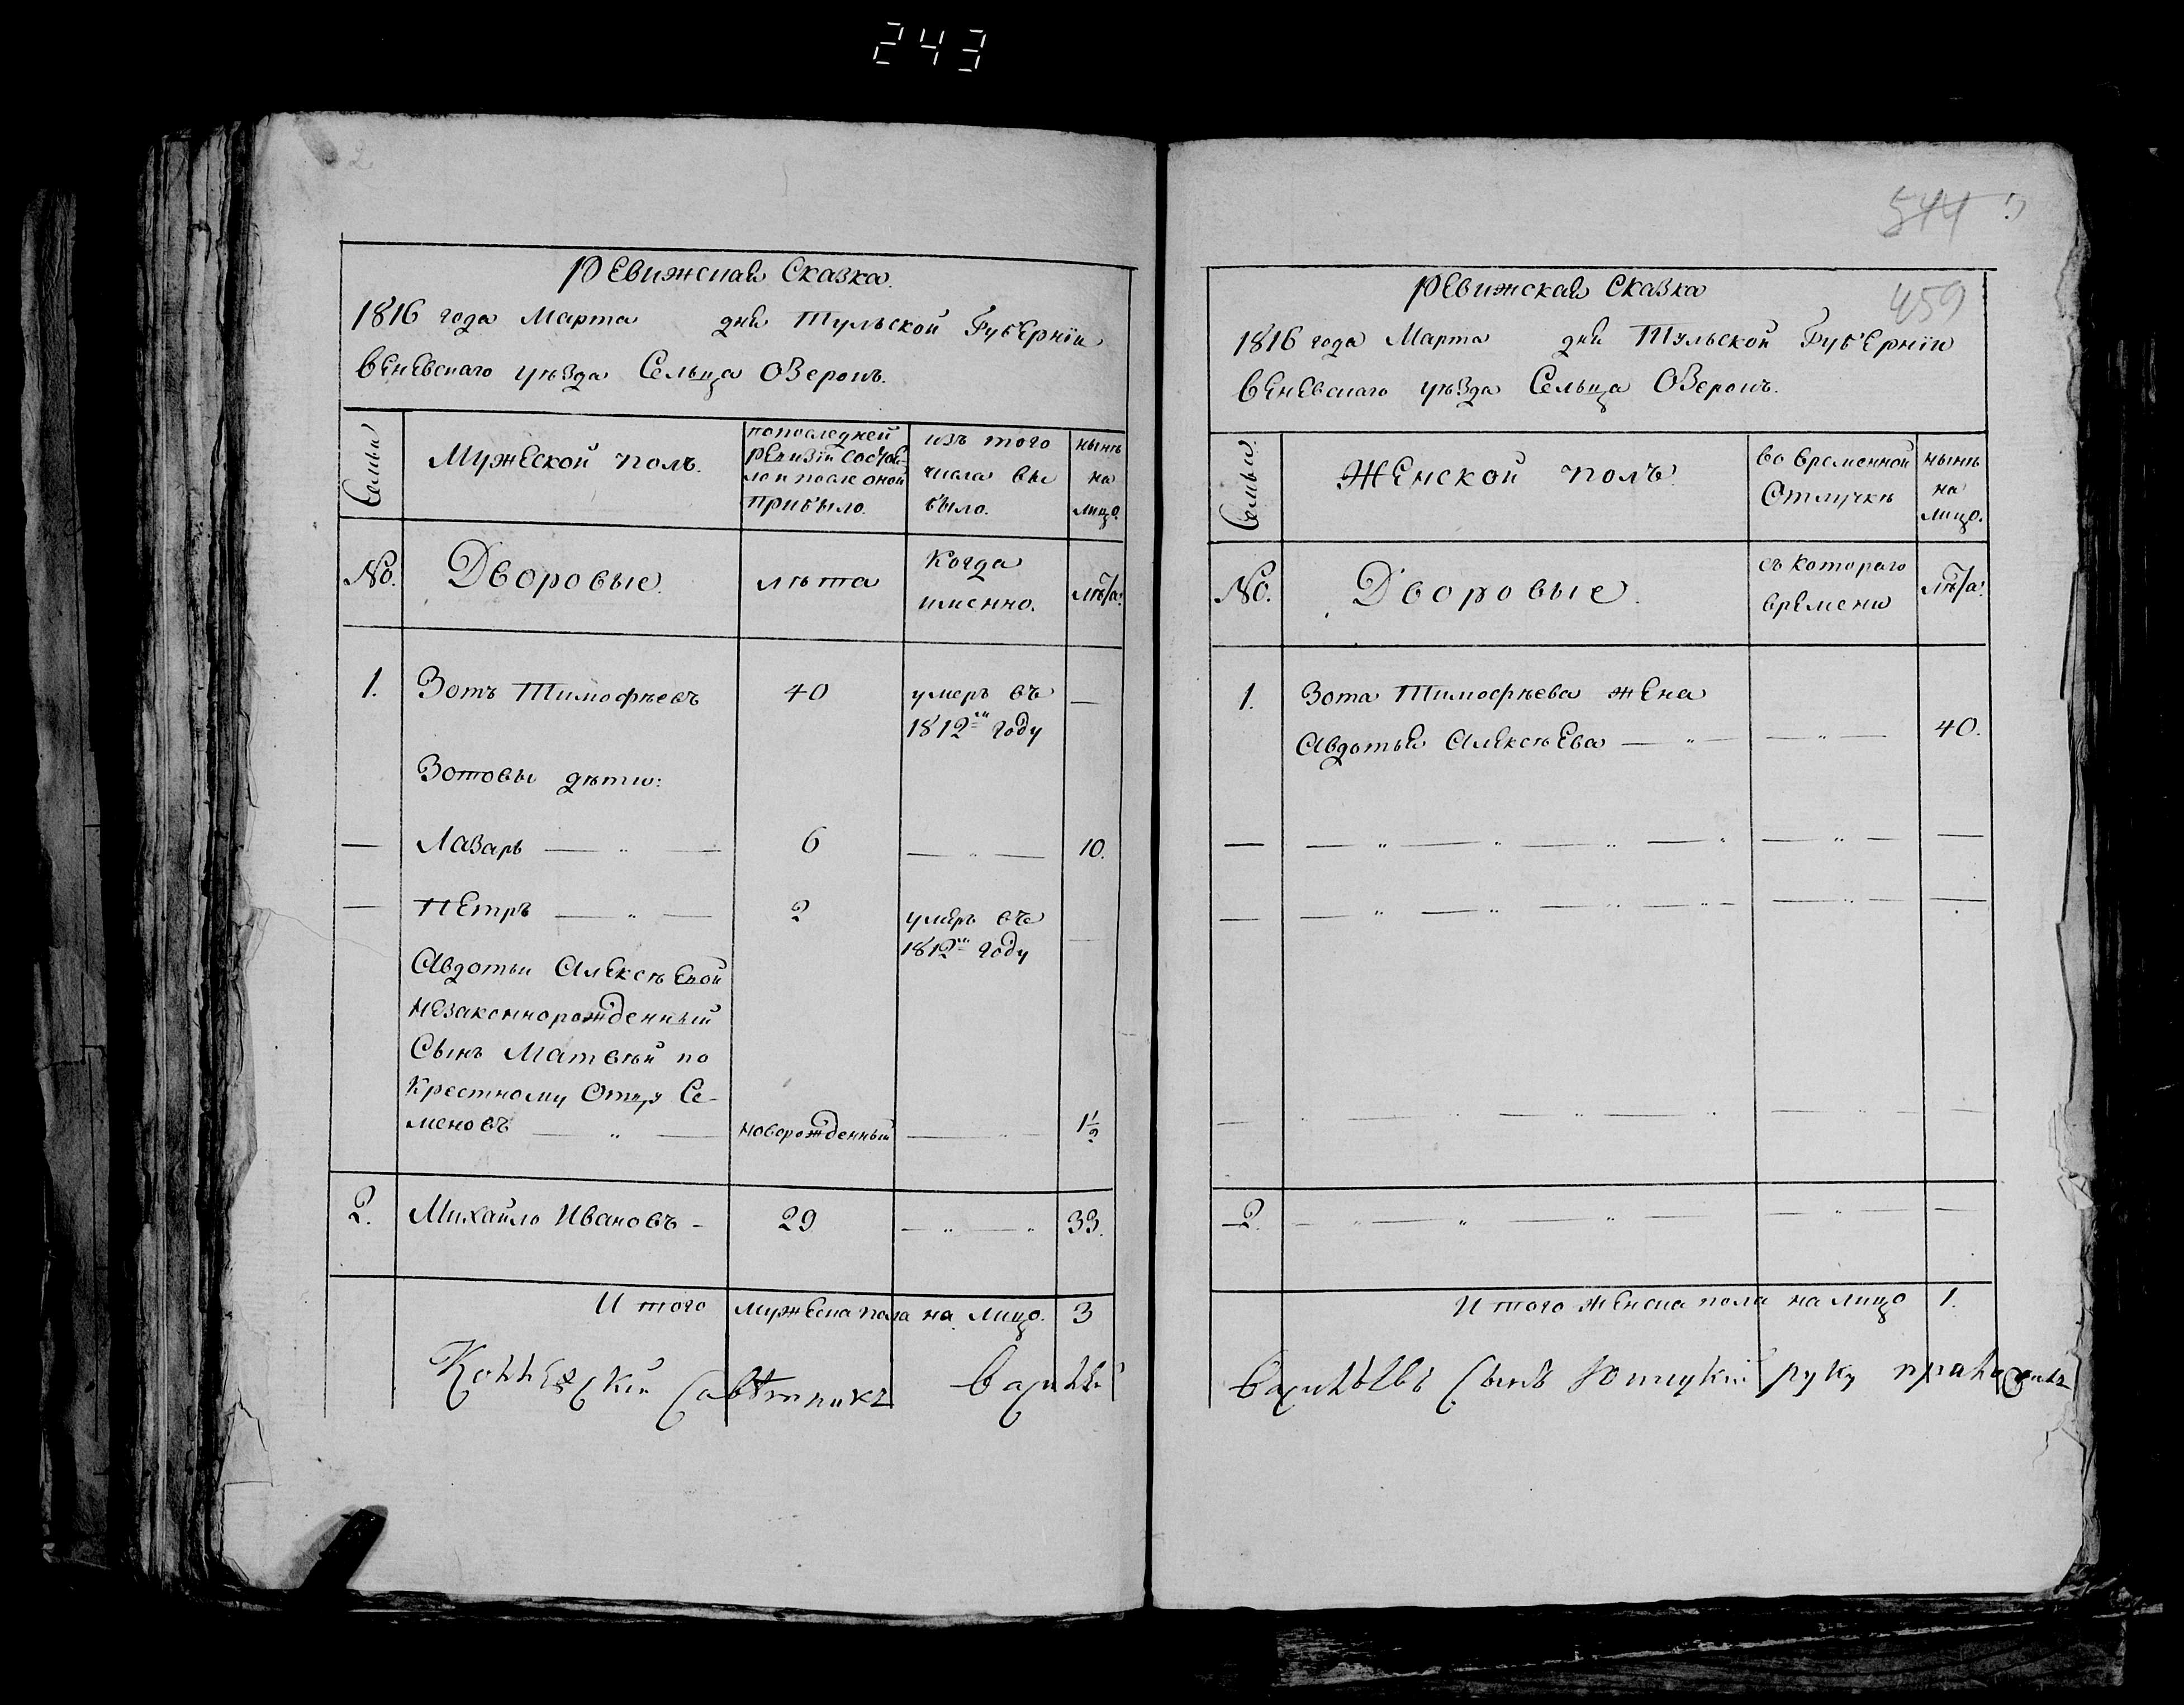 243
2
Ревижская Сказка.
1816 года Марта дня Тульской Губернїи
Веневскаго уѣзда Сельца Озерокъ.
Семьи
Мужеской полъ.
попоследней
Ревизїи состоя-
ло и после оной
прибыло.
изъ того
числа вы
было.
нынѣ
на
лицо.
No.
Дворовые.
лѣта
Когда
именно.
лѣта.
1.
Зотъ Тимофѣевъ
40
умеръ въ
1812м году
—
Зотовы дѣти:
—
Лазарь — „ —
6
— „ —
10.
—
Петръ — „ —
2
умеръ въ
1812м году
—
Авдотьи Алексѣевой
незаконнорожденный
Сынъ Матвѣй по
Крестному Отцу Се-
меновъ — „ —
новорожденный
— „ —
1½
2.
Михайло Ивановъ -
29
— „ — „
33.
И того мужеска пола на лицо. 3
Советникъ Василей
544
459
Ревижская Сказка
1816 года Марта дня Тульской Губернїи
Веневскаго уѣзда Сельца Озерокъ.
Семьи.
Женской полъ.
во временной
Отлучкѣ
нынѣ
на
лицо.
No.
Дворовые.
съ котораго
времени
лѣта.
1.
Зота Тимофѣева жена
Авдотья Алексѣева — „ —
— „ —
40.
2.
И того женска пола на лицо 1.
Васильевъ Сынъ руку приложилъ